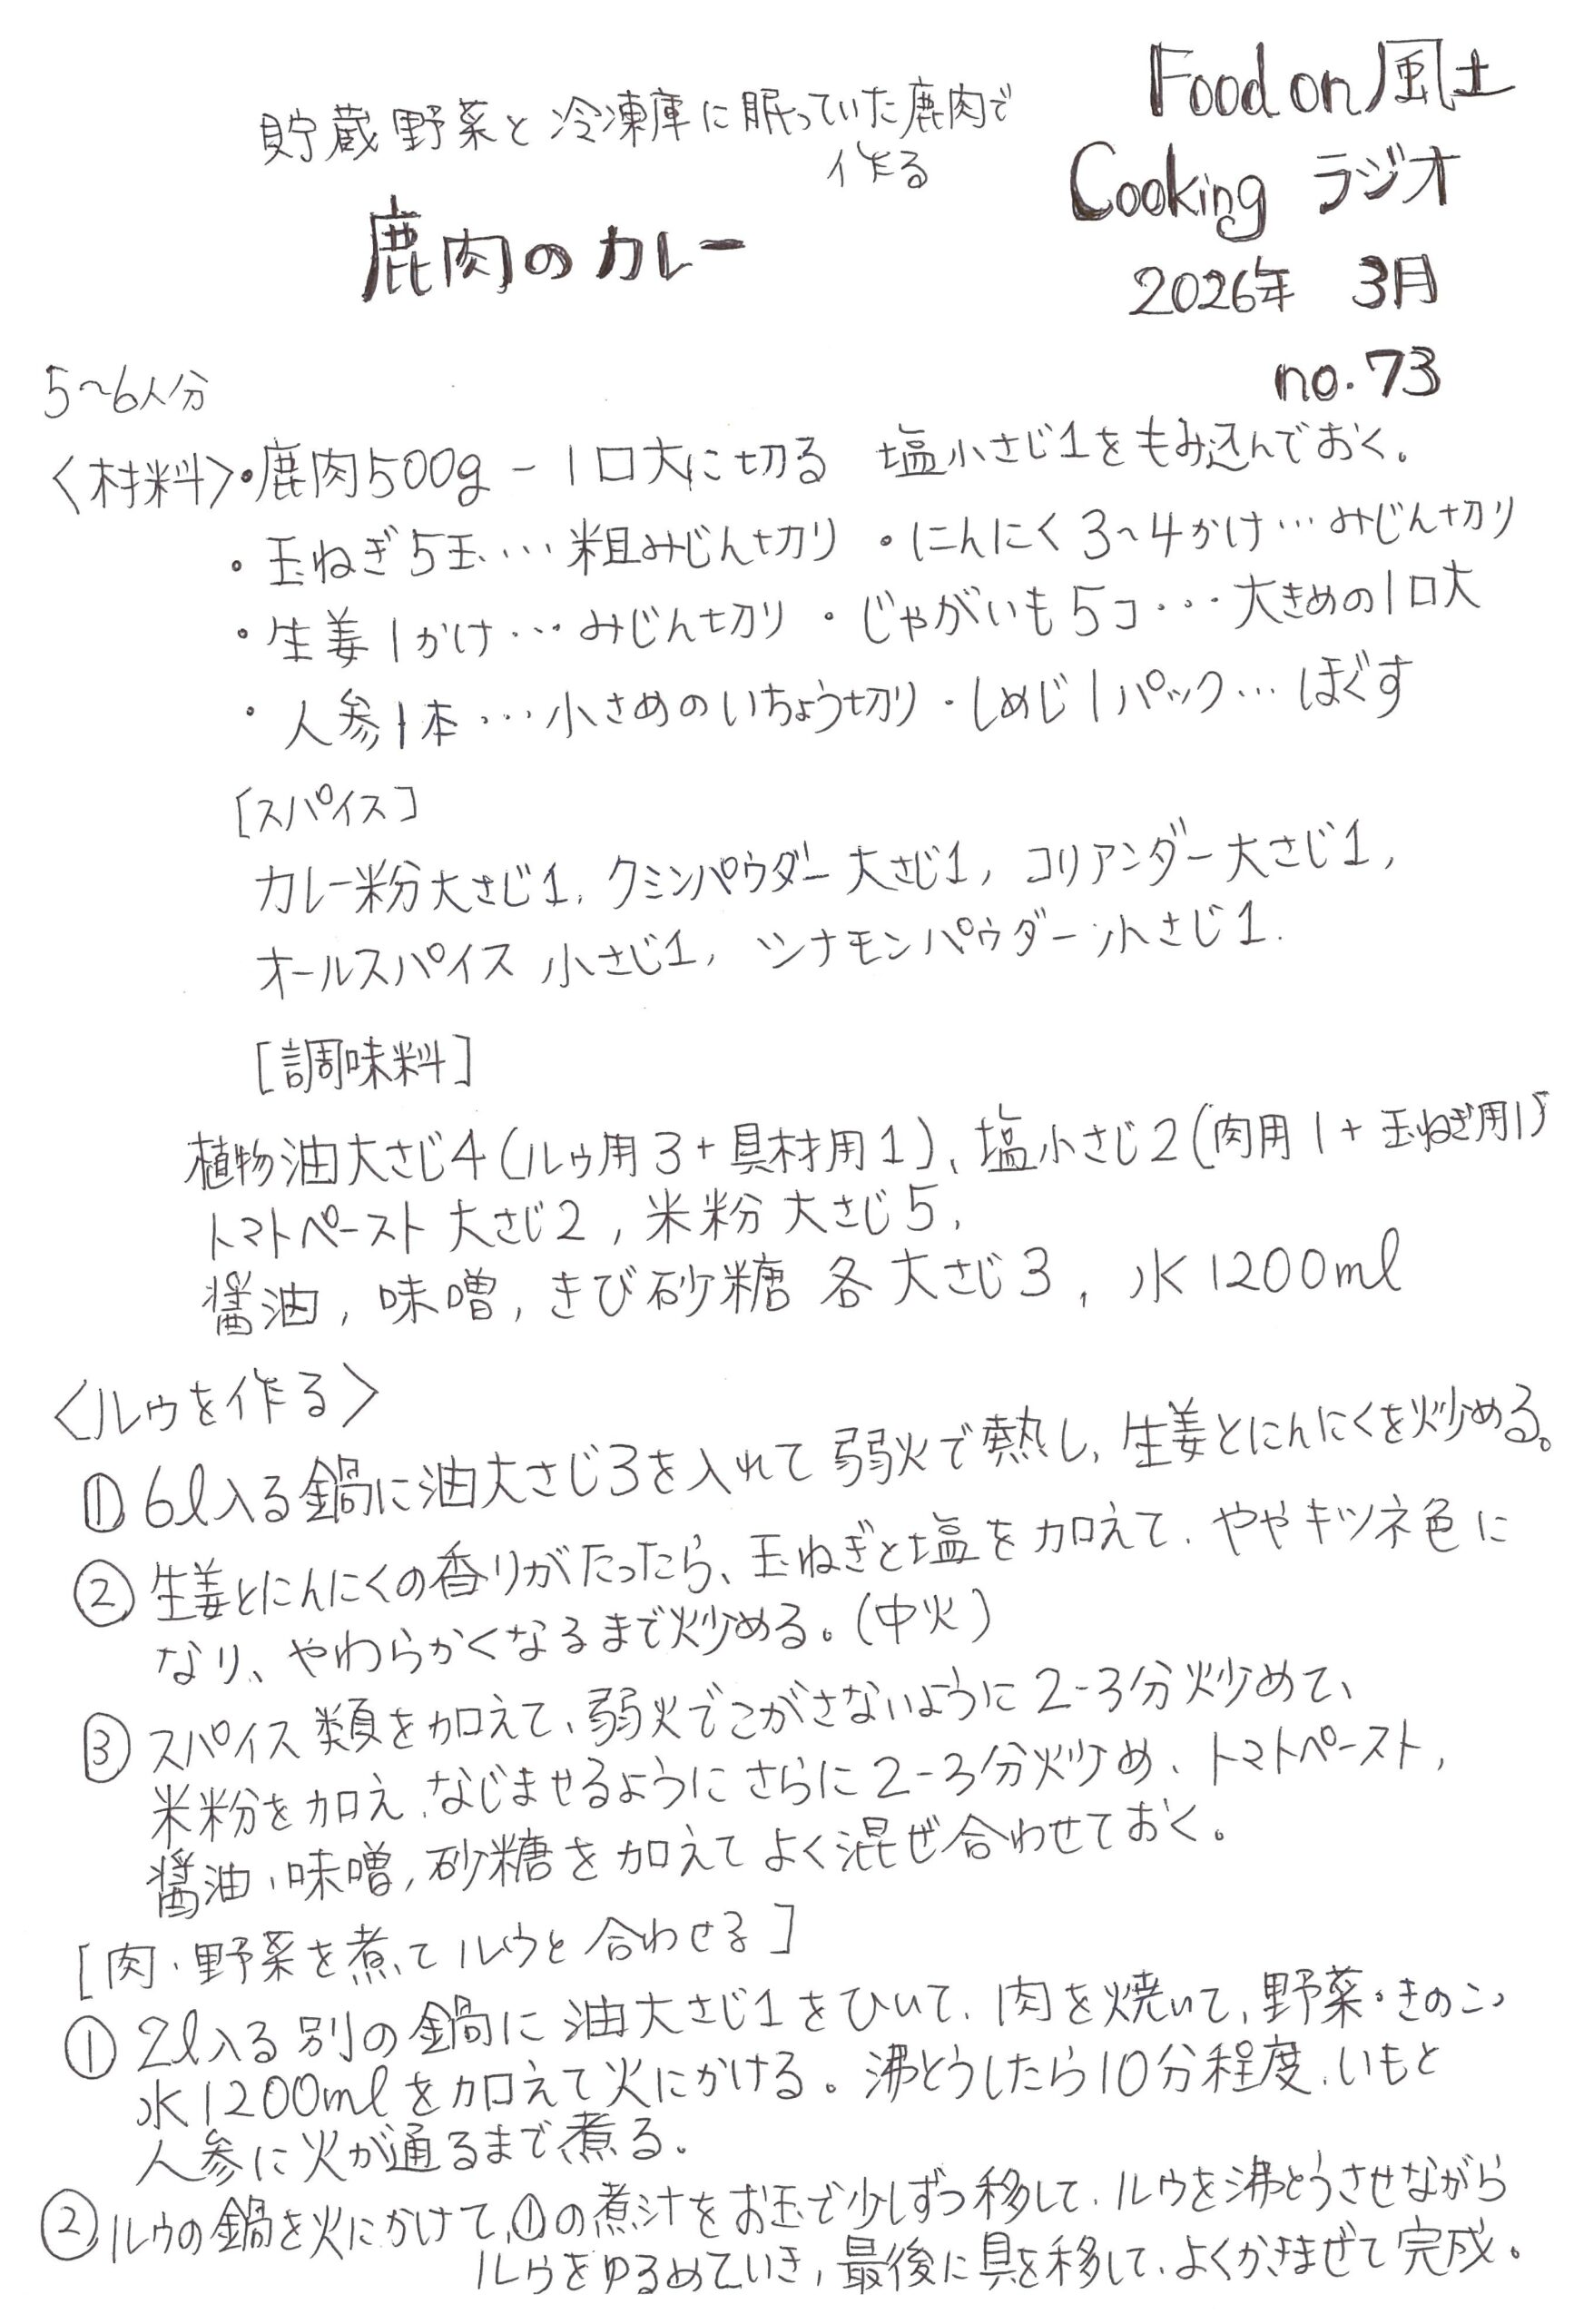 Food on 風土
Cooking ラジオ
2026年 3月
no.73
貯蔵野菜と冷凍庫に眠っていた鹿肉で
作る
鹿肉のカレー
5〜6人分
〈材料〉・鹿肉500g - 1口大に切る 塩小さじ1をもみ込んでおく。
・玉ねぎ5玉…粗みじん切り ・にんにく3〜4かけ…みじん切り
・生姜1かけ…みじん切り ・じゃがいも5コ…大きめの1口大
・人参1本…小さめのいちょう切り ・しめじ1パック…ほぐす
[スパイス]
カレー粉大さじ1, クミンパウダー大さじ1, コリアンダー大さじ1,
オールスパイス小さじ1, シナモンパウダー小さじ1.
[調味料]
植物油大さじ4(ルゥ用3+具材用1)、塩小さじ2(肉用1+玉ねぎ用1)
トマトペースト大さじ2, 米粉大さじ5,
醤油, 味噌, きび砂糖 各大さじ3, 水1200ml
〈ルゥを作る〉
① 6l入る鍋に油大さじ3を入れて弱火で熱し、生姜とにんにくを炒める。
② 生姜とにんにくの香りがたったら、玉ねぎと塩を加えて、ややキツネ色に
なり、やわらかくなるまで炒める。(中火)
③ スパイス類を加えて、弱火でこがさないように2-3分炒めて、
米粉を加え、なじませるようにさらに2-3分炒め、トマトペースト,
醤油、味噌, 砂糖を加えてよく混ぜ合わせておく。
[肉・野菜を煮てルウと合わせる]
① 2l入る別の鍋に油大さじ1をひいて、肉を焼いて, 野菜・きのこ、
水1200mlを加えて火にかける。沸とうしたら10分程度、いもと
人参に火が通るまで煮る。
② ルウの鍋を火にかけて、①の煮汁をお玉で少しずつ移して、ルウを沸とうさせながら
ルウをゆるめていき, 最後に具を移して、よくかきまぜて完成。